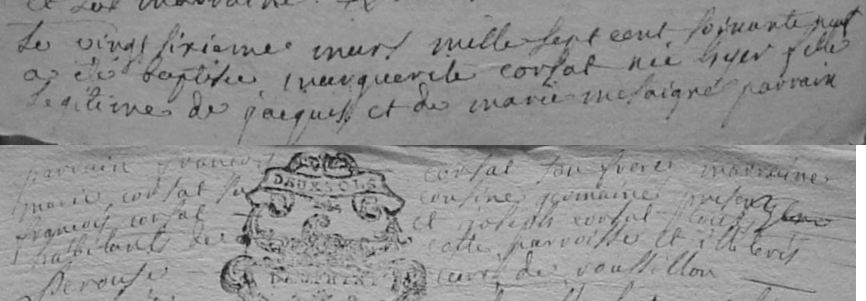 Le vingt sixieme mars mille sept cent soixante neuf
a été baptisée marguerite corsat née hyer fille
legitime de jacques et de marie mesaigné parrain
parrain francois corsat son frere marraine
marie corsat sa cousine germaine present
francois corsat et joseph corsat tous
habitant de cette parroisse et illeteris
DEUX SOLS
Perouse curé de roussillon